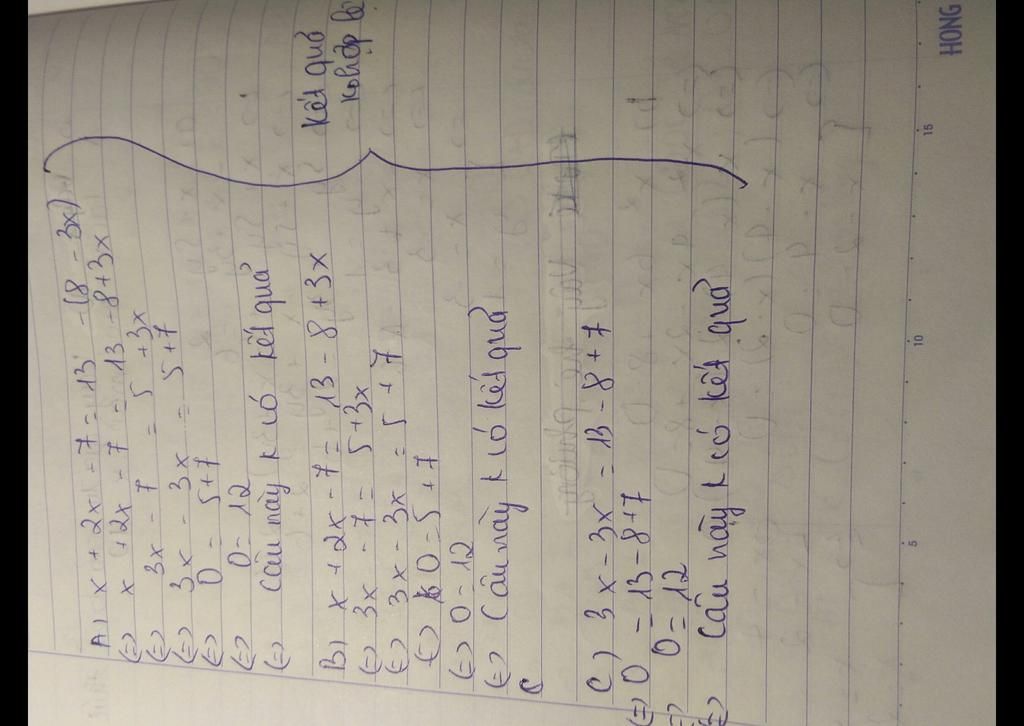 A) x + 2x - 7 = 13 - (8 - 3x)
(=) x + 2x - 7 = 13 - 8 + 3x
(=) 3x - 7 = 5 + 3x
(=) 3x - 3x = 5 + 7
(=) 0 = 5 + 7
(=) 0 = 12
(=) Câu này k có kết quả
B) x + 2x - 7 = 13 - 8 + 3x
(=) 3x - 7 = 5 + 3x
(=) 3x - 3x = 5 + 7
(=) 0 = 5 + 7
(=) 0 = 12
(=) Câu này k có kết quả
C) 3x - 3x = 13 - 8 + 7
(=) 0 = 13 - 8 + 7
(=) 0 = 12
(=) Câu này k có kết quả
Kết quả
5
10
15
HONG